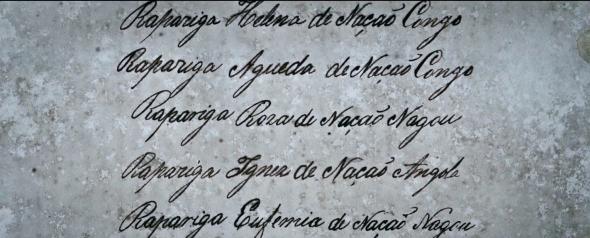 Rapariga Helena de Nação Congo
Rapariga Agueda de Nação Congo
Rapariga Roza de Nação Nagou
Rapariga Ignez de Nação Angola
Rapariga Eufemia de Nação Nagou